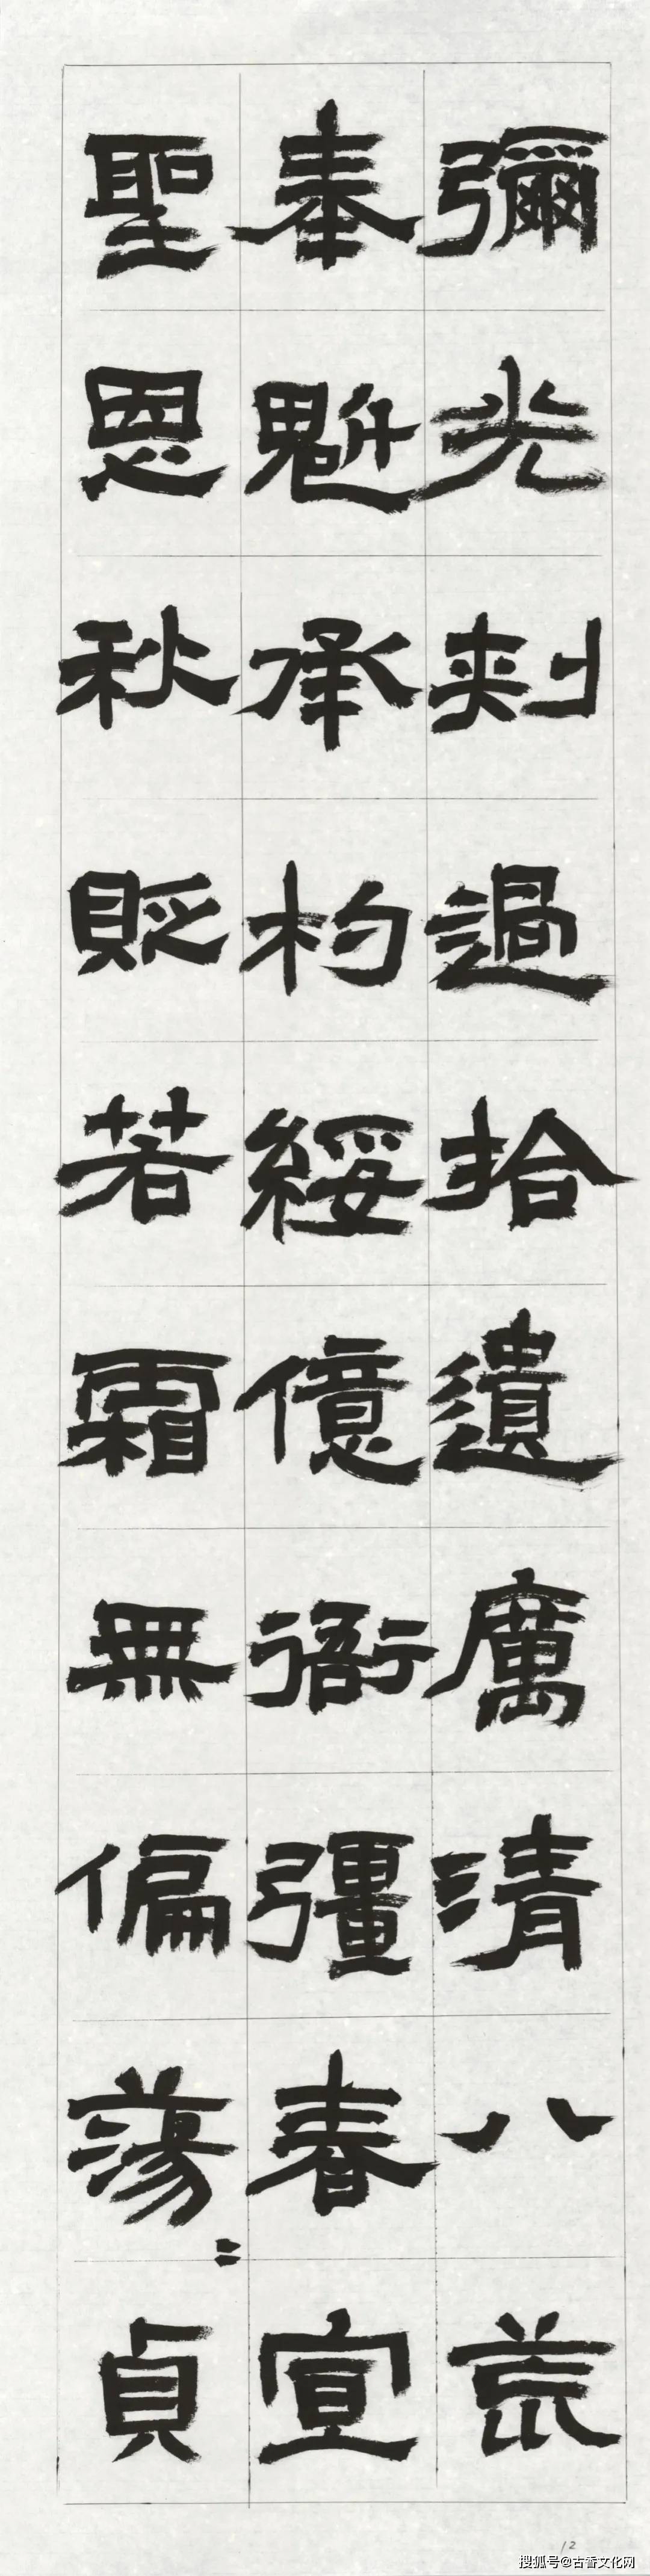 彌光刺過拾遺厲清八荒
奉魁承杓綏億衙彊春宣
聖恩秋貶若霜無偏蕩゠貞
12
搜狐号@古香文化网